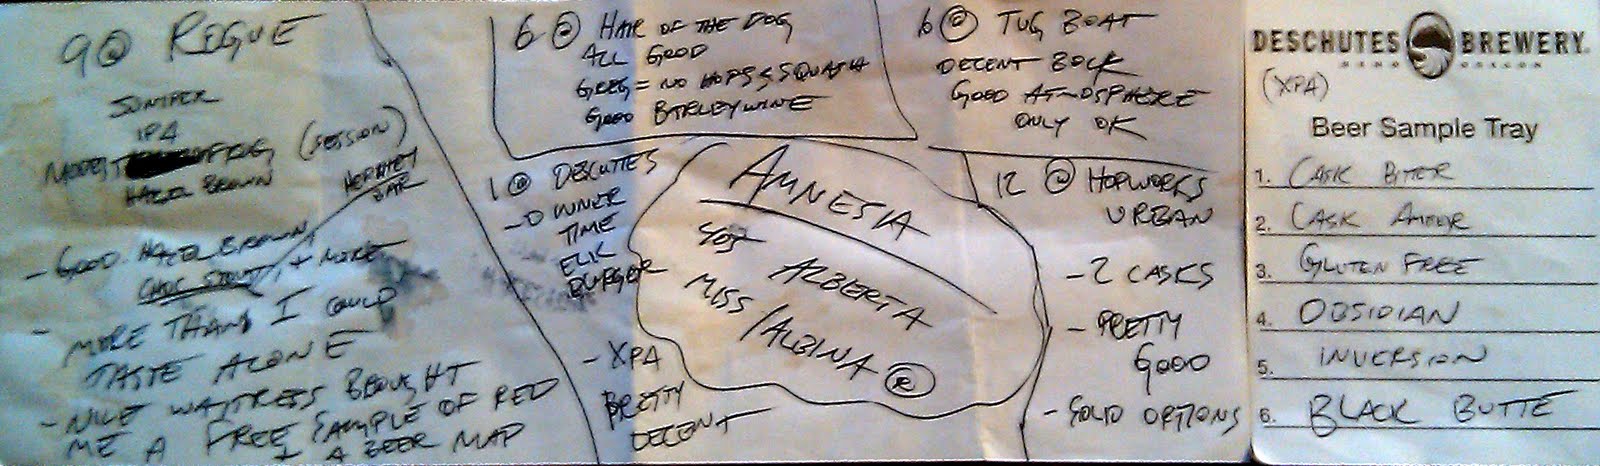 9 @ ROGUE
JUNIPER
IPA
(SESSION)
HAZEL BROWN
- GOOD HAZEL BROWN,
CHOC STOUT, + MORE
- MORE THAN I COULD
TASTE ALONE
- NICE WAITRESS BROUGHT
ME A FREE SAMPLE OF RED
+ A BEER MAP
6 @ HAIR OF THE DOG
ALL GOOD
GREG = NO HOPS & SQUASH
GOOD BARLEYWINE
6 @ TUG BOAT
DECENT BOCK
GOOD ATMOSPHERE
ONLY OK
1 @ DESCUTES
- DINNER
TIME
ELK
BURGER
- XPA
PRETTY
DECENT
AMNESIA
ALBERTA
MISS/ALBINA
12 @ HOPWORKS
URBAN
- 2 CASKS
- PRETTY
GOOD
- SOLID OPTIONS
DESCHUTES BREWERY
BEND OREGON
(XPA)
Beer Sample Tray
1. CASK BITTER
2. CASK AMBER
3. GLUTEN FREE
4. OBSIDIAN
5. INVERSION
6. BLACK BUTTE